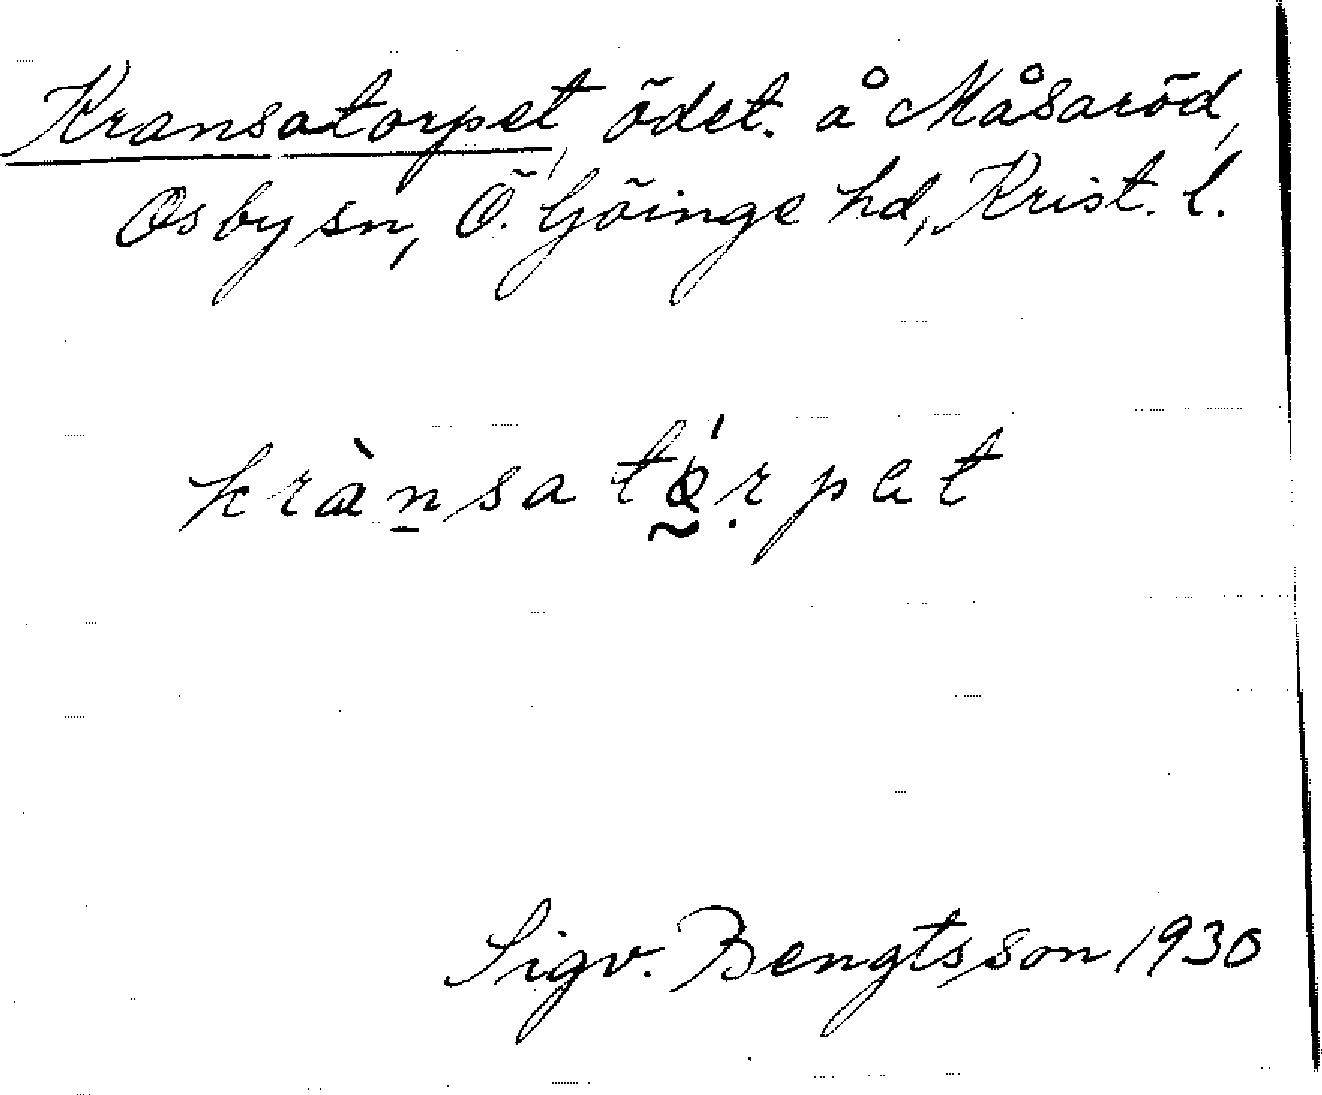 Kransatorpet, ödet. å Måsaröd,
Osby sn, Ö. Göinge hd, Krist. l.
krànsatórpet
Sigv. Bengtsson 1930